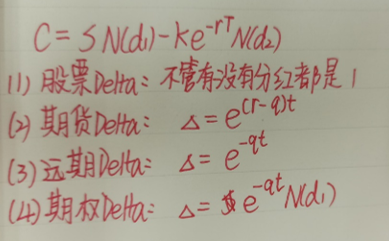 C = S N(d₁) - Ke^{-rT} N(d₂)
(1) 股票Delta: 不管有没有分红都是 1
(2) 期货Delta: Δ = e^{(r-q)t}
(3) 远期Delta: Δ = e^{-qt}
(4) 期权Delta: Δ = e^{-qt} N(d₁)